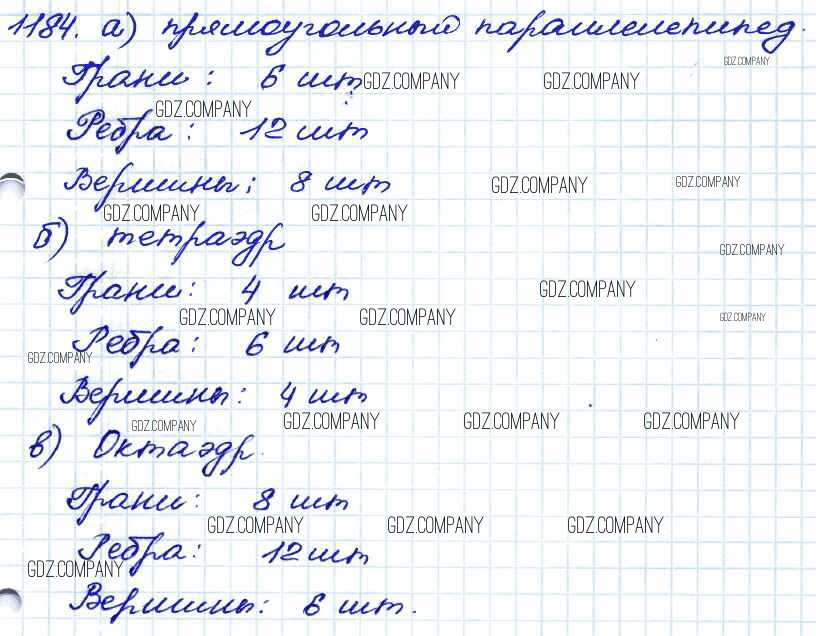 1184. а) прямоугольный параллелепипед.
GDZ.COMPANY
Грани: 6 шт GDZ.COMPANY GDZ.COMPANY
GDZ.COMPANY
Ребра: 12 шт
Вершины: 8 шт GDZ.COMPANY GDZ.COMPANY
GDZ.COMPANY GDZ.COMPANY
б) тетраэдр GDZ.COMPANY
Грани: 4 шт GDZ.COMPANY
GDZ.COMPANY GDZ.COMPANY GDZ.COMPANY
Ребра: 6 шт
GDZ.COMPANY
Вершины: 4 шт
GDZ.COMPANY GDZ.COMPANY GDZ.COMPANY GDZ.COMPANY
в) Октаэдр.
Грани: 8 шт
GDZ.COMPANY GDZ.COMPANY GDZ.COMPANY
Ребра: 12 шт
GDZ.COMPANY
Вершины: 6 шт.